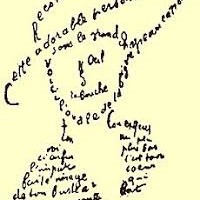 Reco
Cette adorable person
sous le grand chapeau canotier
Œil
la bouche
Voici l'ovale de ta figure
cou exquis
voi
ci enfin
l'impar
faite image
de ton buste a
un peu
plus bas
c'est ton
coeur
qui
bat